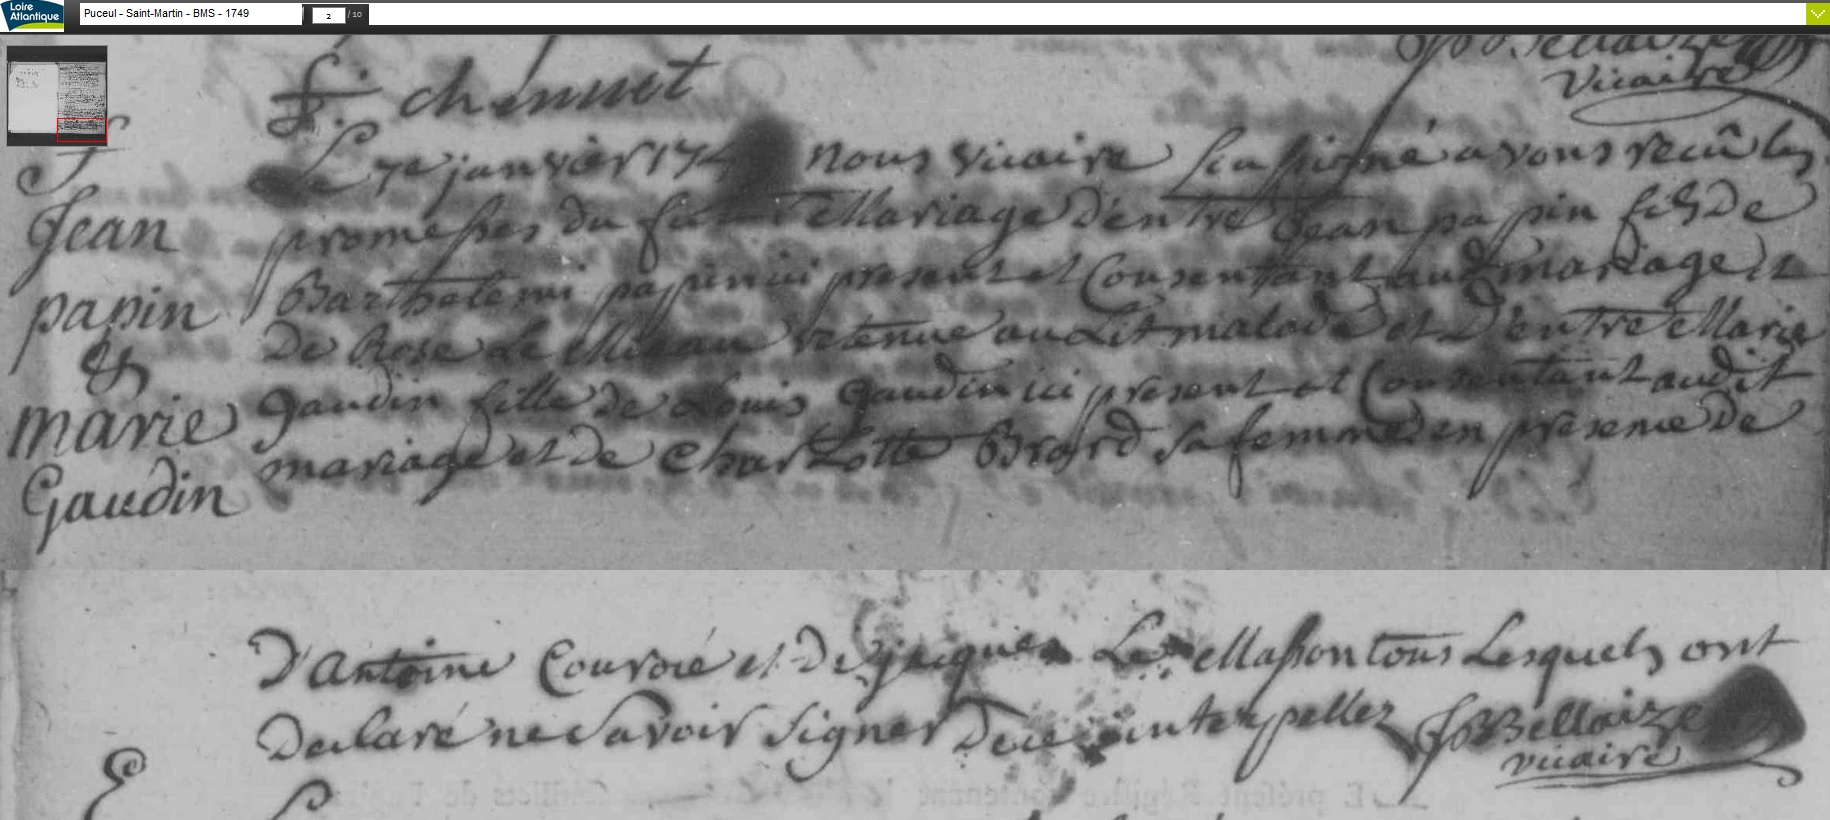 Loire
Atlantique
Puceul - Saint-Martin - BMS - 1749
2 / 10
Bellaize
Vicaire
f. chemmet
Le 7e janvier 174 nous vicaire soussigné avons recû les
promesses du futur Mariage d'entre Jean papin fils de
Barthelemi papin ici present et Consentant audt mariage et
De Rose de Milau retenue au Lit malade et D'entre Marie
gaudin fille de Louis Gaudin ici present et Consentant audit
mariage et de Charlotte Brard sa femme en presence De
Jean
papin
&
marie
Gaudin
D'Antoine Couroié et De jacques Le Masson tous Lesquels ont
Declaré ne Savoir signer De ce interpellez JB Bellaize
vicaire